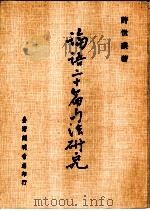 許世瑛著
論語二十篇句法研究
臺灣開明書店印行